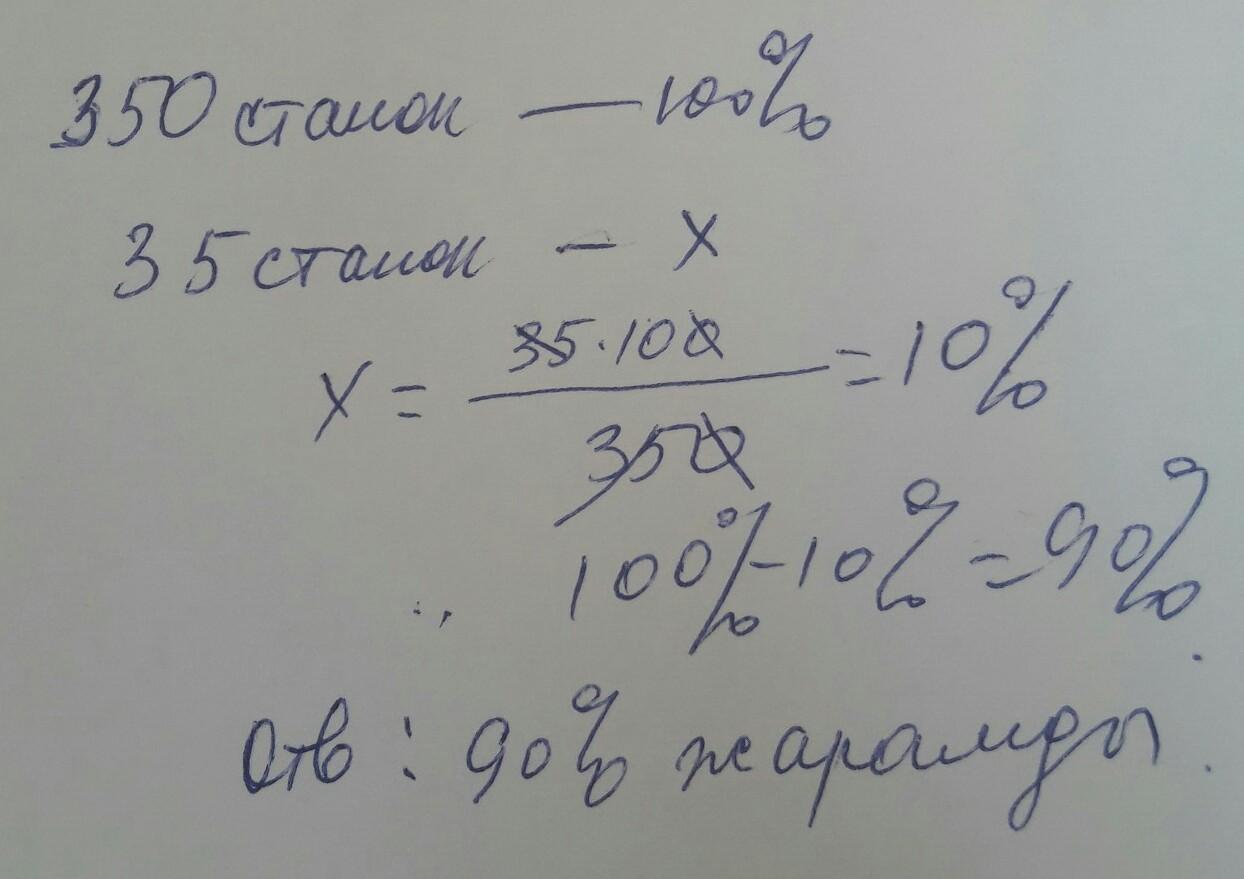 350 станок — 100%
35 станок – x
x = 35·100 / 350 = 10%
100% - 10% = 90%
Отв : 90% жарамды.